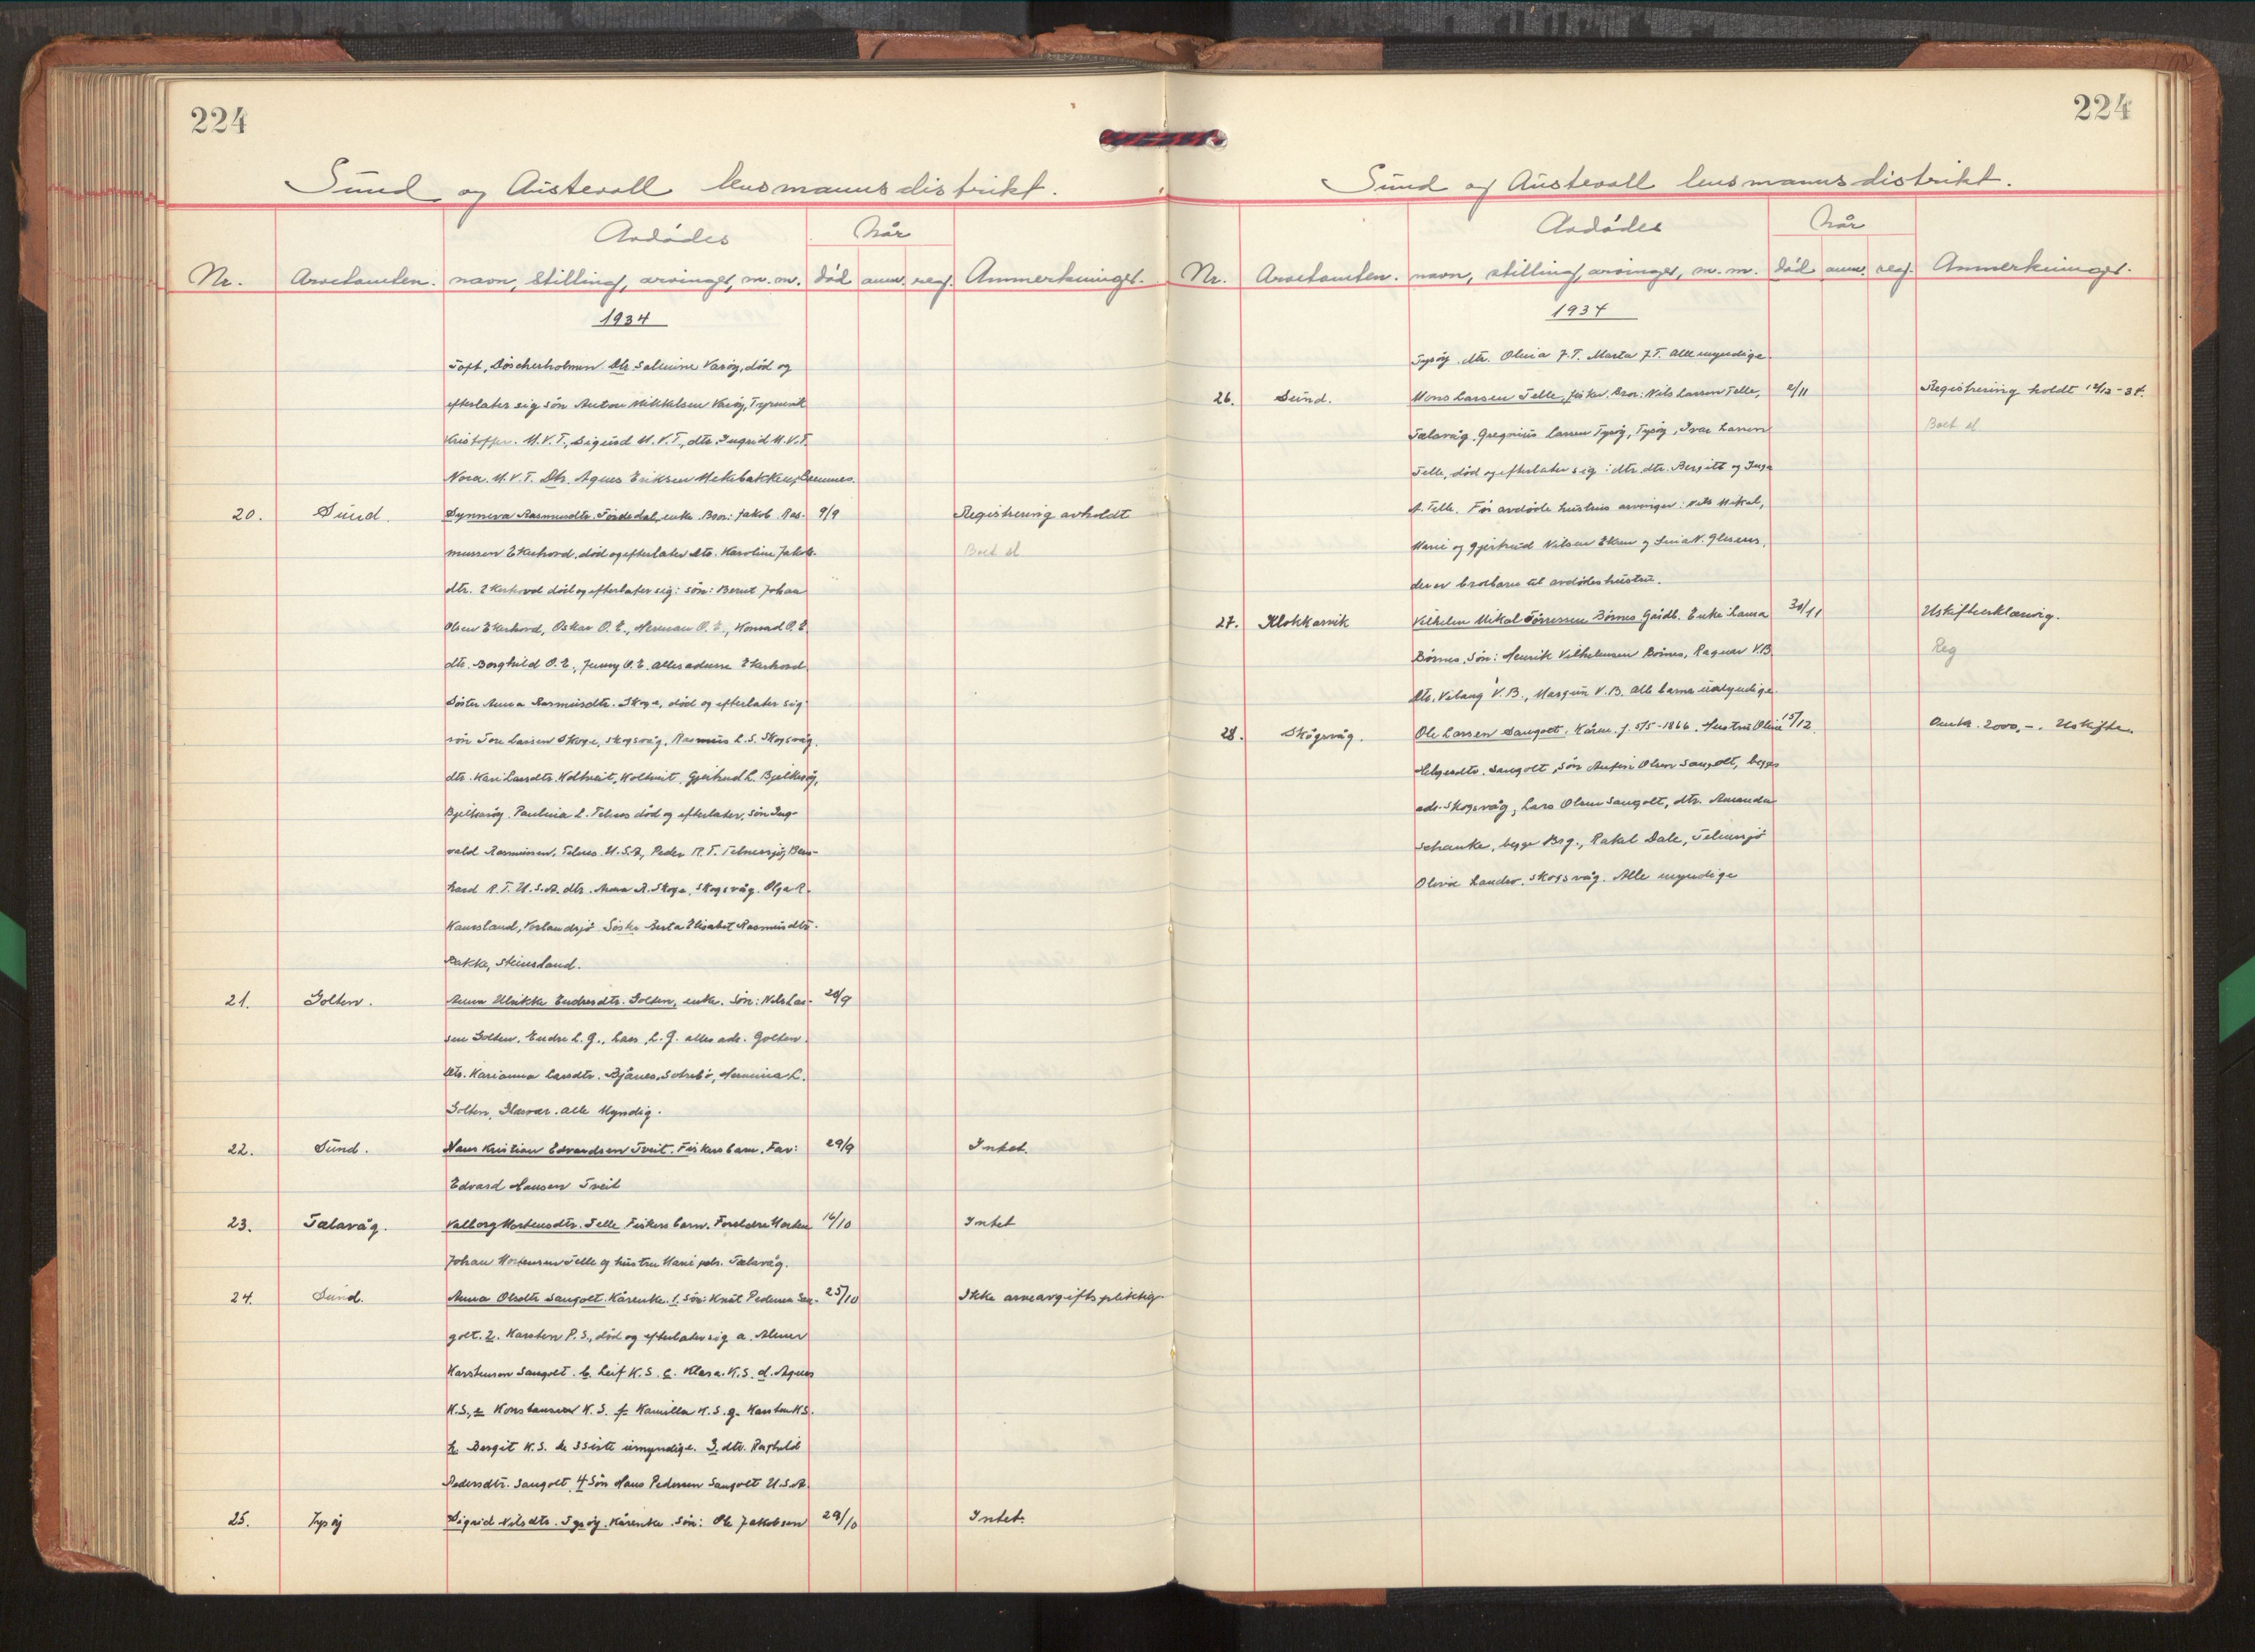 224
Sund og Austevoll lensmannsdistrikt.
Avdødes
Når
Nr. Arvetomten. navn, stilling, arvinger, m.m. død anm. reg. Anmerkninger.
1934
Toft, Döscherholmen. Dtr. Salmine Varöy, död og
efterlater sig sön Anton Mikkelsen Varöy,
Kristoffer. M.V.T., Sigurd M.V.T., dtr. Ingrid M.V.T.
Nora. M.V.T. Dtr. Agnes Eriksen
20. Sund. Synneva Rasmusdtr. Fördedal, enke. Bror: Jakob Ras- 9/9 Registrering avholdt
mussen Ekerhovd, död og efterlater dtr. Karoline Jakobs- Boet sl
dtr. Ekerhovd död og efterlater sig: sön: Bernt Johan
Olsen Ekerhovd, Oskar O.E., Herman O.E., Konrad O.E.
dtr. Borghild O.E., Jenny O.E. alles adresse Ekerhovd
Söster Anna Rasmusdtr. Skoge, död og efterlater sig
sön Tore Larsen Skoge, Skogsvåg, Rasmus L.S. Skogsvåg.
dtr. Kari Larsdtr. Koltveit, Koltveit, Gjertrud L. Bjelkeröy,
Bjelkeröy. Paulina L. Telnes död og efterlater, sön Ing-
vald Rasmussen, Telnes U.S.A., Peder R.T. Telnessjö, Bern-
hard R.T. U.S.A. dtr. Anna R. Skoge, Skogsvåg. Olga R.
Kausland, Vorlandsjö Söster Berta Elisabet Rasmusdtr.
Bakke, Steinsland.
21. Golten. Anna Ulrikke Endresdtr. Golten, enke. Sön: Nils Lar- 20/9
sen Golten, Endre L.G., Lars L.G. alles adr. Golten.
dtr. Karianna Larsdtr. Bjånes, Sotrebö, Hermina L.
Golten, Glesvær. alle Myndig.
22. Sund. Hans Kristian Edvardsen Tveit. Fiskers barn. Far: 29/9 Intet.
Edvard Hansen Tveit
23. Tælavåg. Valborg Mortensdtr. Telle Fiskers barn. Foreldre Morten 16/10 Intet
Johan Mortensen Telle og hustru Marie Tælavåg.
24. Sund. Anna Olsdtr Sangolt. Kårenke. 1. Sön: Knut Pedersen San- 25/10 Ikke arveavgiftspliktig
golt. 2. Karsten P.S., död og efterlater sig a. Almer
Karstensen Sangolt. b. Leif K.S. c. Klara. K.S. d. Agnes
K.S., e K.S. f. Kamilla K.S. g. Karsten K.S.
h. Bergit K.S. de 3 siste umyndige. 3. dtr. Ragnhild
Pedersdtr. Sangolt 4 Sön Hans Pedersen Sangolt U.S.A.
25. Tysöy Sigrid Nilsdtr. Tysöy. Kårenke. Sön: Ole Jakobsen 29/10 Intet.
224
Sund og Austevoll lensmannsdistrikt.
Avdødes
Når
Nr. Arvetomten. navn, stilling, arvinger, m.m. død anm. reg. Anmerkninger.
1934
Tysöy. dtr. Olina J.T. Marta J.T. alle myndige
26. Sund. Mons Larsen Telle, fisker. Bror: Nils Larsen Telle, 2/11 Registrering holdt 12/12-34.
Tælavåg, Gregorius Larsen Tysöy, Tysöy, Ivar Larsen Boet sl
Telle, död og efterlater sig: dtr. dtr. Bergitt og Inga
A. Telle. For avdöde hustrus arvinger: Nils Mikal,
Marie og Gjertrud Nilsen Ekren og N. Glesnes,
der er brorbarn til avdödes hustru.
27. Klokkarvik Vilhelm Mikal Törresen Börnes Gårdb. Enke: Laura 30/11 Uskifteerklæring.
Börnes. Sön: Henrik Vilhelmsen Börnes, Ragnar V.B. Reg
dtr. V.B., V.B. alle barna umyndige.
28. Skogsvåg. Ole Larsen Sangolt. Kårm. f. 5/5-1866. Hustru Oline 15/12. Antk. 2000,-. Uskifte.
Helgesdtr. Sangolt, sön Anfin Olsen Sangolt, begges
adr. Skogsvåg, Lars Olsen Sangolt, dtr. Amanda
Schanke, begge Brg., Rakel Dale, Telnessjö
Olivie Landro, Skogsvåg. Alle myndige